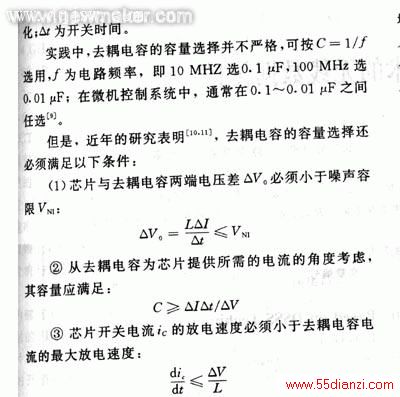 www.newmaker.com
化;Δt 为开关时间。
实践中,去耦电容的容量选择并不严格,可按 C = 1/f
选用,f 为电路频率, 即 10 MHZ 选 0.1 μF,100 MHz 选
0.01 μF; 在微机控制系统中, 通常在 0.1～0.01 μF 之间
任选[9]。
但是, 近年的研究表明[10.11], 去耦电容的容量选择还
必须满足以下条件:
(1) 芯片与去耦电容两端电压差 ΔV₀ 必须小于噪声容
限 V_NI:
ΔV₀ = LΔI/Δt ≤ V_NI
② 从去耦电容为芯片提供所需的电流的角度考虑,
其容量应满足:
C ≥ ΔIΔt/ΔV
③ 芯片开关电流 i_c 的放电速度必须小于去耦电容电
流的最大放电速度:
di_c/dt ≤ ΔV/L
www.55dianzi.com